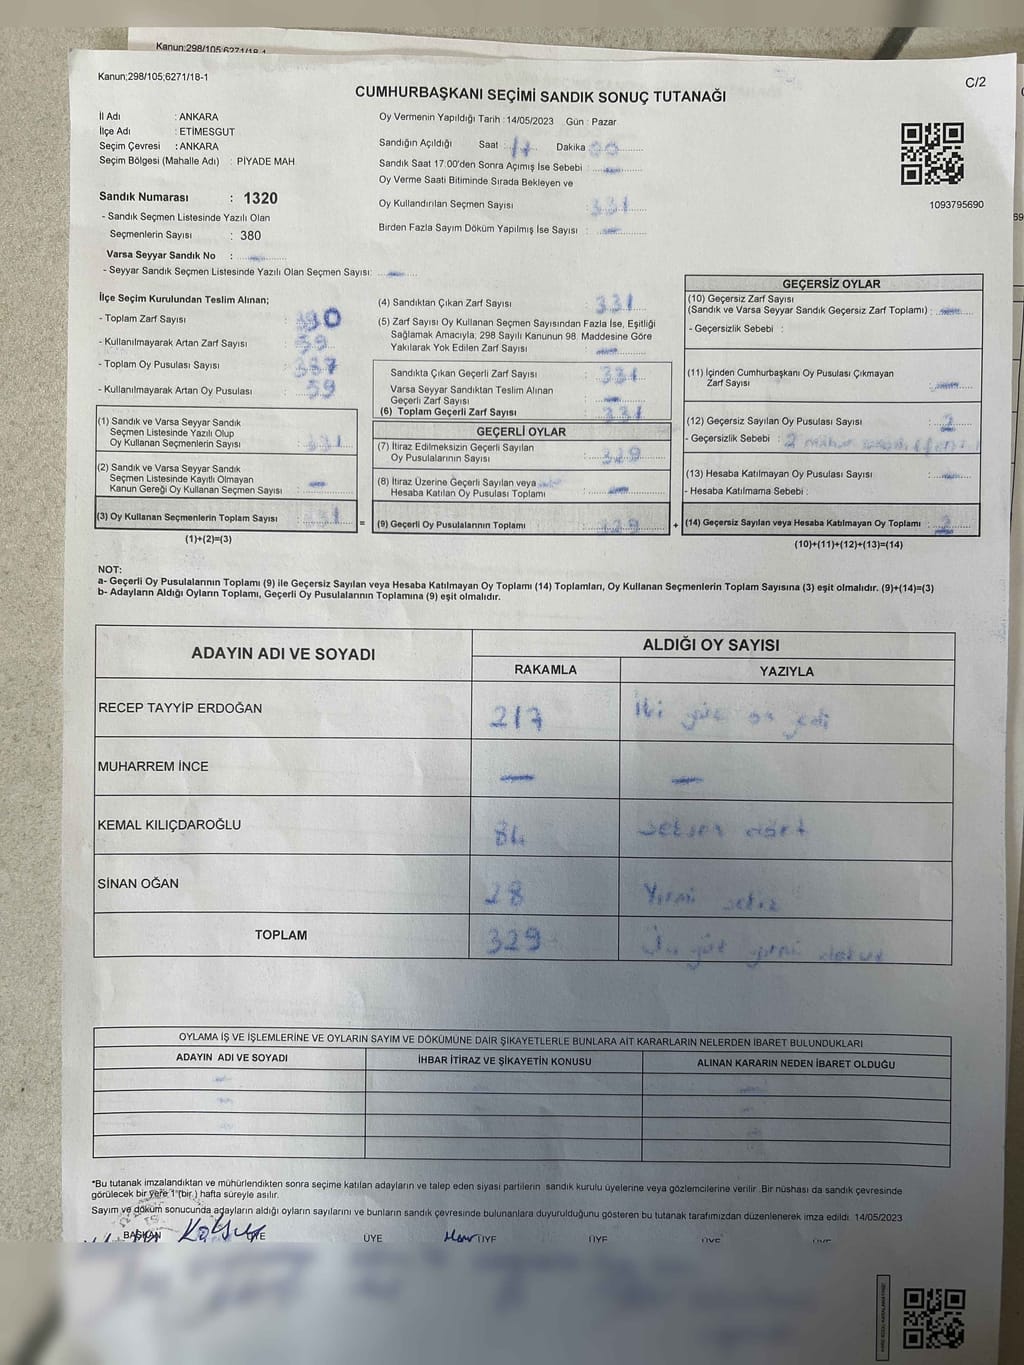 Kanun;298/105;6271/18-1
Kanun;298/105;6271/18-1
C/2
CUMHURBAŞKANI SEÇİMİ SANDIK SONUÇ TUTANAĞI
İl Adı : ANKARA
İlçe Adı : ETİMESGUT
Seçim Çevresi : ANKARA
Seçim Bölgesi (Mahalle Adı) : PİYADE MAH
Sandık Numarası : 1320
- Sandık Seçmen Listesinde Yazılı Olan
Seçmenlerin Sayısı : 380
Varsa Seyyar Sandık No : —
- Seyyar Sandık Seçmen Listesinde Yazılı Olan Seçmen Sayısı: —
Oy Vermenin Yapıldığı Tarih :14/05/2023 Gün : Pazar
Sandığın Açıldığı Saat : 17 Dakika : 00
Sandık Saat 17:00'den Sonra Açımış İse Sebebi : —
Oy Verme Saati Bitiminde Sırada Bekleyen ve
Oy Kullandırılan Seçmen Sayısı : 331
Birden Fazla Sayım Döküm Yapılmış İse Sayısı : —
1093795690
İlçe Seçim Kurulundan Teslim Alınan;
- Toplam Zarf Sayısı : 390
- Kullanılmayarak Artan Zarf Sayısı : 59
- Toplam Oy Pusulası Sayısı : 387
- Kullanılmayarak Artan Oy Pusulası : 59
(1) Sandık ve Varsa Seyyar Sandık
Seçmen Listesinde Yazılı Olup
Oy Kullanan Seçmenlerin Sayısı : 331
(2) Sandık ve Varsa Seyyar Sandık
Seçmen Listesinde Kayıtlı Olmayan
Kanun Gereği Oy Kullanan Seçmen Sayısı : —
(3) Oy Kullanan Seçmenlerin Toplam Sayısı : 331
(1)+(2)=(3)
(4) Sandıktan Çıkan Zarf Sayısı : 331
(5) Zarf Sayısı Oy Kullanan Seçmen Sayısından Fazla İse, Eşitliği
Sağlamak Amacıyla; 298 Sayılı Kanunun 98. Maddesine Göre
Yakılarak Yok Edilen Zarf Sayısı : —
Sandıkta Çıkan Geçerli Zarf Sayısı : 331
Varsa Seyyar Sandıktan Teslim Alınan
Geçerli Zarf Sayısı : —
(6) Toplam Geçerli Zarf Sayısı : 331
GEÇERLİ OYLAR
(7) İtiraz Edilmeksizin Geçerli Sayılan
Oy Pusulalarının Sayısı : 329
(8) İtiraz Üzerine Geçerli Sayılan veya
Hesaba Katılan Oy Pusulası Toplamı : —
= (9) Geçerli Oy Pusulalarının Toplamı : 329 +
GEÇERSİZ OYLAR
(10) Geçersiz Zarf Sayısı
(Sandık ve Varsa Seyyar Sandık Geçersiz Zarf Toplamı) : —
- Geçersizlik Sebebi :
(11) İçinden Cumhurbaşkanı Oy Pusulası Çıkmayan
Zarf Sayısı : —
(12) Geçersiz Sayılan Oy Pusulası Sayısı : 2
- Geçersizlik Sebebi : 2 mühür
(13) Hesaba Katılmayan Oy Pusulası Sayısı : —
- Hesaba Katılmama Sebebi :
(14) Geçersiz Sayılan veya Hesaba Katılmayan Oy Toplamı : 2
(10)+(11)+(12)+(13)=(14)
NOT:
a- Geçerli Oy Pusulalarının Toplamı (9) ile Geçersiz Sayılan veya Hesaba Katılmayan Oy Toplamı (14) Toplamları, Oy Kullanan Seçmenlerin Toplam Sayısına (3) eşit olmalıdır. (9)+(14)=(3)
b- Adayların Aldığı Oyların Toplamı, Geçerli Oy Pusulalarının Toplamına (9) eşit olmalıdır.
ADAYIN ADI VE SOYADI
ALDIĞI OY SAYISI
RAKAMLA YAZIYLA
RECEP TAYYİP ERDOĞAN 217 iki yüz on yedi
MUHARREM İNCE — —
KEMAL KILIÇDAROĞLU 84 seksen dört
SİNAN OĞAN 28 Yirmi sekiz
TOPLAM 329 Üç yüz yirmi dokuz
OYLAMA İŞ VE İŞLEMLERİNE VE OYLARIN SAYIM VE DÖKÜMÜNE DAİR ŞİKAYETLERLE BUNLARA AİT KARARLARIN NELERDEN İBARET BULUNDUKLARI
ADAYIN ADI VE SOYADI İHBAR İTİRAZ VE ŞİKAYETİN KONUSU ALINAN KARARIN NEDEN İBARET OLDUĞU
*Bu tutanak imzalandıktan ve mühürlendikten sonra seçime katılan adayların ve talep eden siyasi partilerin sandık kurulu üyelerine veya gözlemcilerine verilir. Bir nüshası da sandık çevresinde
görülecek bir yere 1 (bir.) hafta süreyle asılır.
Sayım ve döküm sonucunda adayların aldığı oyların sayılarını ve bunların sandık çevresinde bulunanlara duyurulduğunu gösteren bu tutanak tarafımızdan düzenlenerek imza edildi. 14/05/2023
BAŞKAN ÜYE ÜYE ÜYE ÜYE ÜYE ÜYE